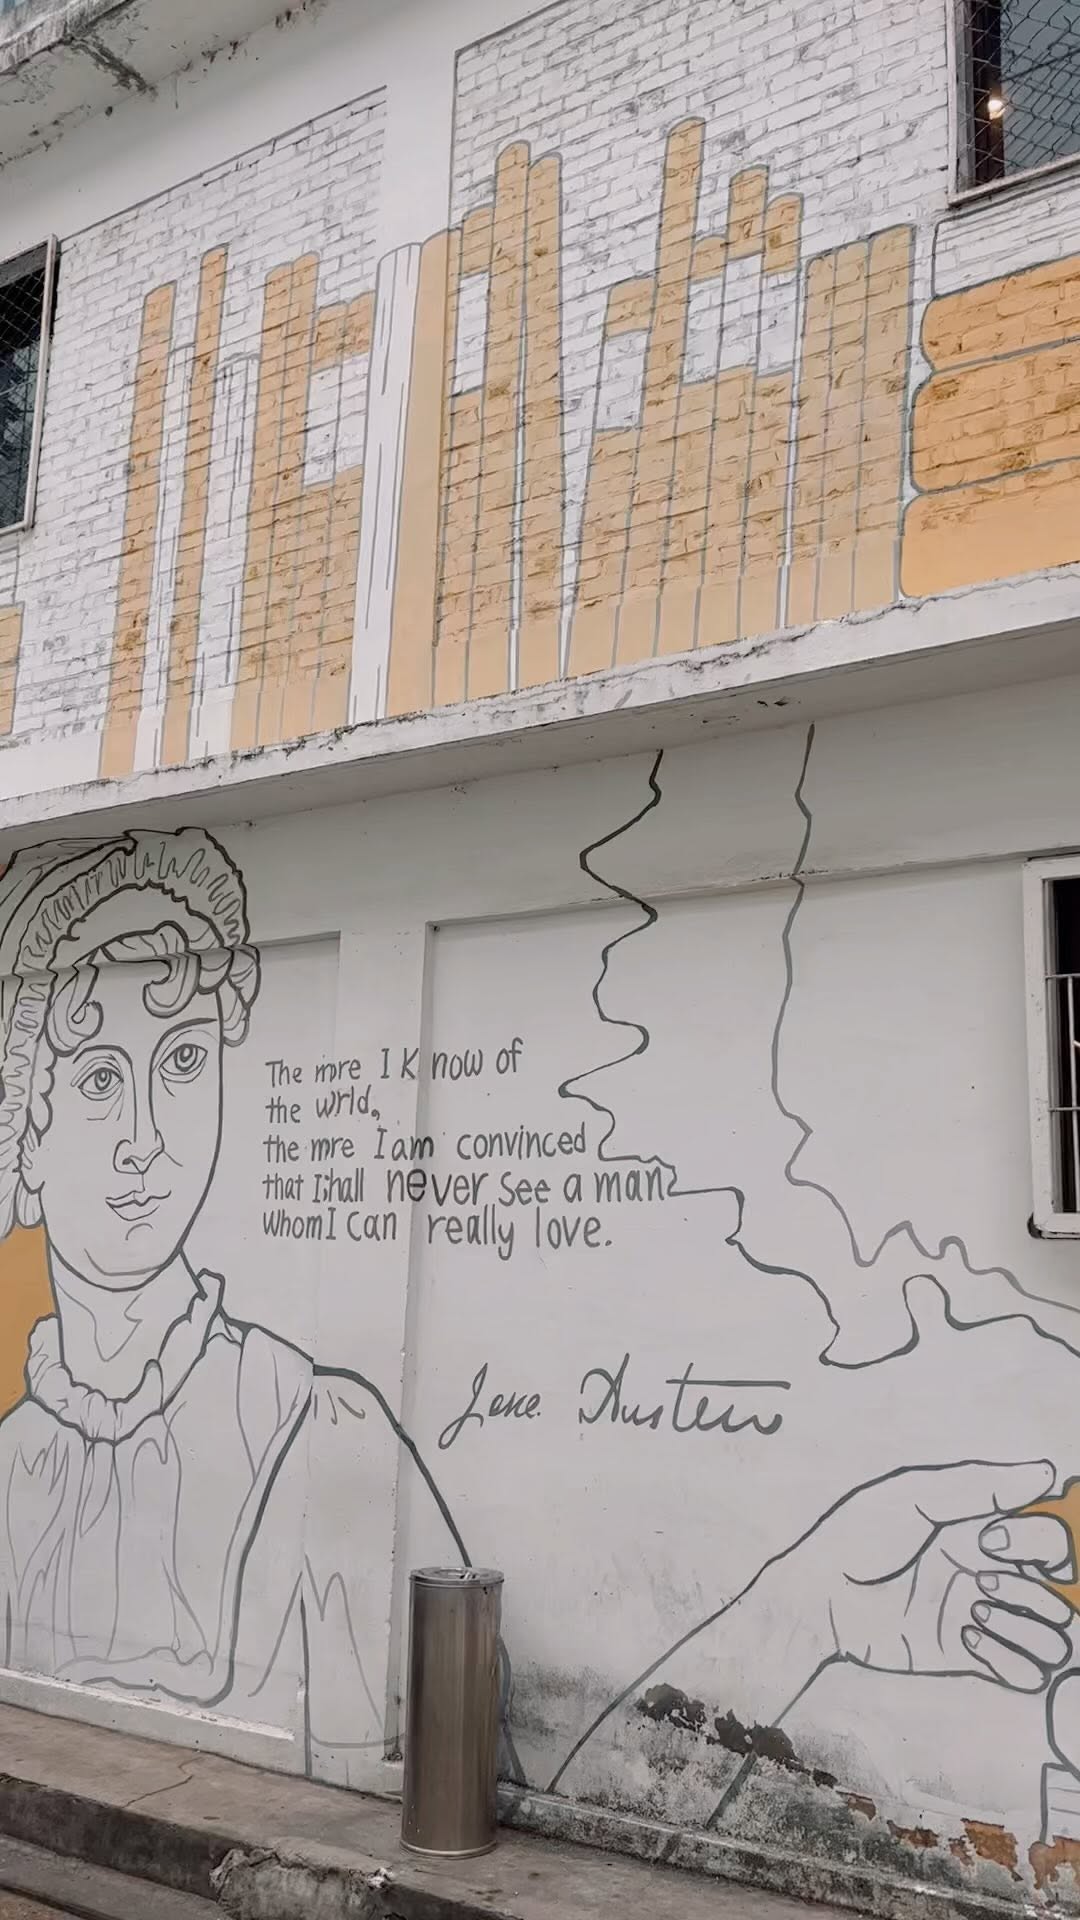 The mre I know of
the wrld,
the mre I am convinced
that I shall never see a man
whom I can really love.
Jane Austen